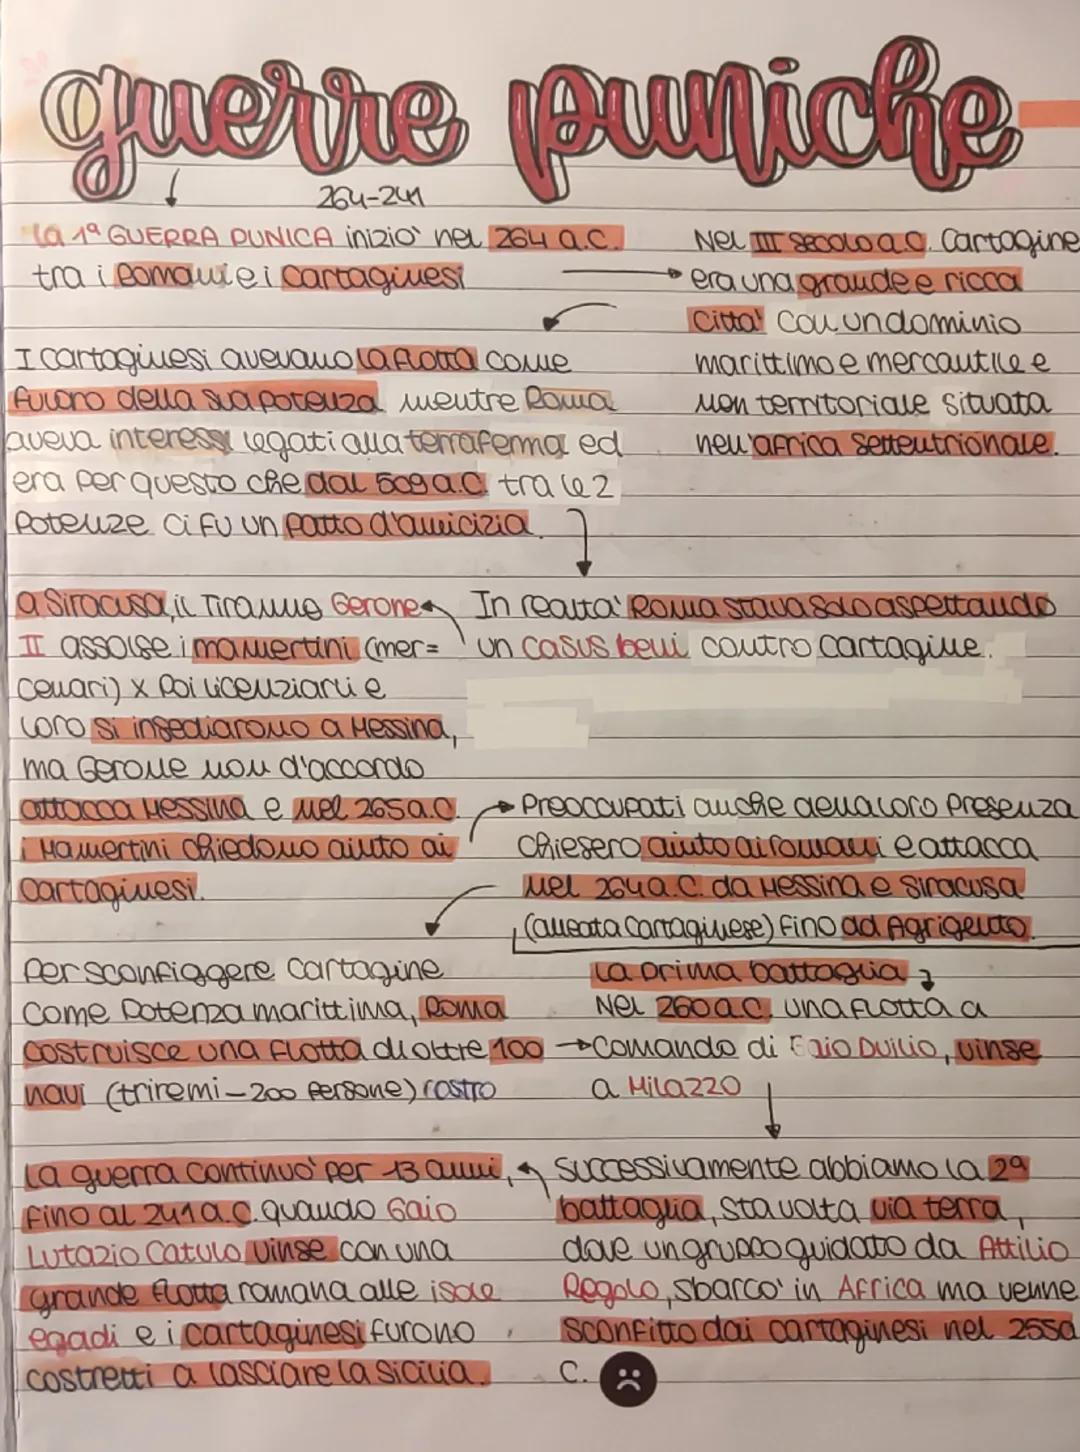 guerre puniche
264-241
la 1ª GUERRA PUNICA iniziò nel 264 a.C.
tra i Romani e i Cartaginesi
Nel III secolo a.C. Cartagine
era una grande e ricca
città con un dominio
marittimo e mercantile e
non territoriale situata
nell'africa settentrionale.
I cartaginesi avevano la flotta come
fulcro della sua potenza mentre Roma
aveva interessi legati alla terraferma ed
era per questo che dal 509 a.C. tra le 2
potenze ci fu un patto d'amicizia.
In realtà Roma stava solo aspettando
un casus belli contro Cartagine.
a Siracusa, il Tiranno Gerone
II assolse i mamertini (mer=
cenari) x poi licenziarli e
loro si insediarono a Messina,
ma Gerone non d'accordo
attacca Messina e nel 265 a.C.
i Mamertini chiedono aiuto ai
Cartaginesi.
Preoccupati anche della loro presenza
chiesero aiuto ai romani e attacca
nel 264 a.C. da Messina e Siracusa
(alleata Cartaginese) fino ad Agrigento.
Per sconfiggere Cartagine
come potenza marittima, Roma
costruisce una flotta di oltre 100
navi (triremi-200 persone) rostro
La prima battaglia
Nel 260 a.C. una flotta a
comando di Gaio Duilio, vinse
a Milazzo
Successivamente abbiamo la 2ª
battaglia, stavolta via terra,
dove un gruppo guidato da Attilio
Regolo, sbarcò in Africa ma venne
sconfitto dai cartaginesi nel 255a
C.
La guerra continuò per 13 anni,
fino al 241 a.C. quando Gaio
Lutazio Catulo vinse con una
grande flotta romana alle isole
egadi e i cartaginesi furono
costretti a lasciare la Sicilia.